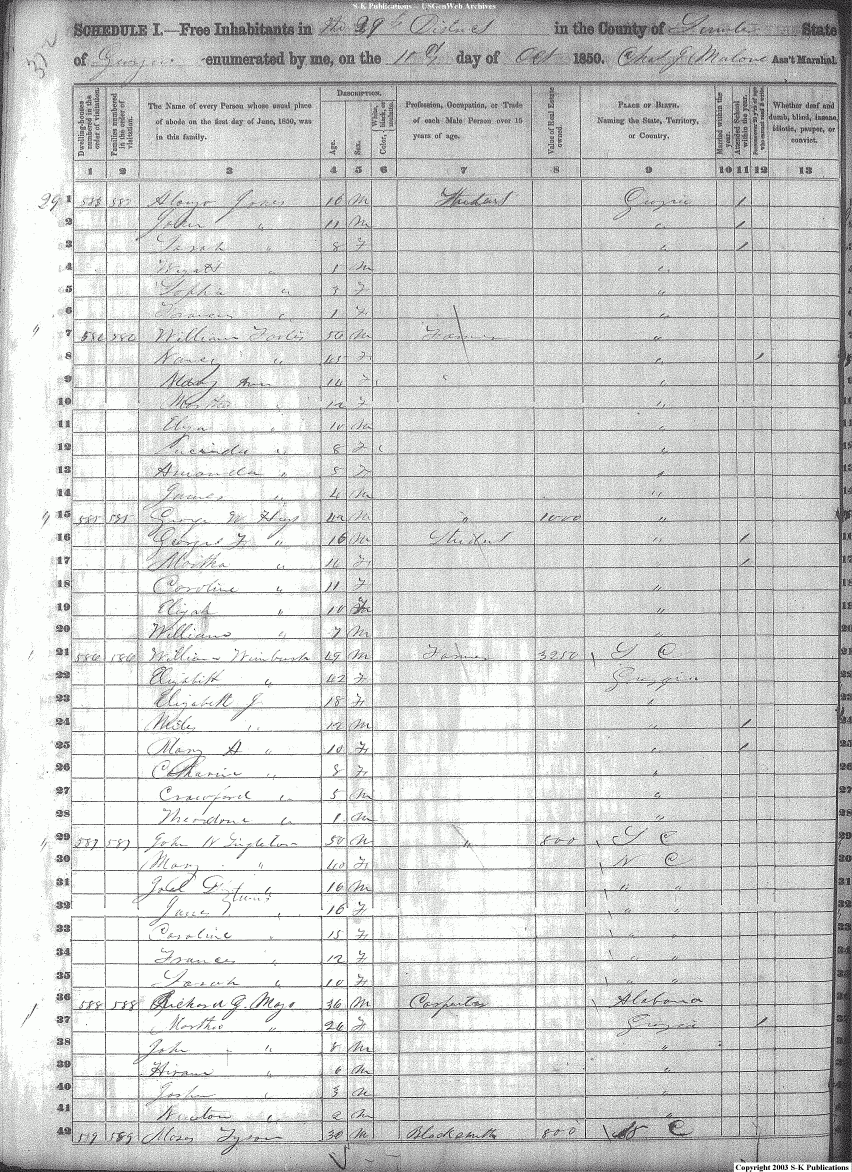 S-K Publications - USGenWeb Archives
SCHEDULE I.—Free Inhabitants in the 29th District in the County of Sumter State
of Georgia enumerated by me, on the 10th day of Oct 1850. Chas J Malone Ass't Marshal.
Dwelling-houses numbered in the order of visitation. Families numbered in the order of visitation. The Name of every Person whose usual place of abode on the first day of June, 1850, was in this family. DESCRIPTION. Age. Sex. Color, White, black, or mulatto. Profession, Occupation, or Trade of each Male Person over 15 years of age. Value of Real Estate owned. PLACE OF BIRTH. Naming the State, Territory, or Country. Married within the year. Attended School within the year. Persons over 20 y'rs of age who cannot read & write. Whether deaf and dumb, blind, insane, idiotic, pauper, or convict.
1 2 3 4 5 6 7 8 9 10 11 12 13
29 1 583 Alonzo Jones 10 M Student Georgia / 1
2 John " 11 M " / 2
3 Sarah " 8 F " / 3
4 Wyatt " 1 M " 4
5 " F " 5
6 " 1 F " 6
7 William 50 M Farmer " 7
8 Nancy " 45 F " / 8
9 Mary Ann 14 F " 9
10 Martha " 12 F " 10
11 " 10 M " 11
12 Lucinda " 8 F " 12
13 Amanda " 5 F " 13
14 James " 4 M " 14
15 585 585 George W Hays 42 M " 1000 " 15
16 George F " 16 M Student " / 16
17 Martha " F / 17
18 Caroline " 11 F " 18
19 Elijah " 10 " 19
20 William " 7 M " 20
21 586 586 William Wimbush 49 M Farmer 3250 S C 21
22 Elizabeth " 42 F Georgia 22
23 Elizabeth J 18 F " 23
24 " 12 M " / 24
25 Mary A " 10 F " / 25
26 Catharine " 8 F " 26
27 Crawford " 5 M " 27
28 Theodore " 1 M " 28
29 587 587 John W Singleton 50 M " 800 S C 29
30 Mary " 40 F N C 30
31 Joel " 16 M " " 31
32 " 16 F " " 32
33 Caroline " 15 F " " 33
34 Frances " 12 F " " 34
35 Sarah " 10 F " " 35
36 588 588 Richard G. Mays 36 M Carpenter Alabama 36
37 Martha " 26 F Georgia / 37
38 John " 8 M " 38
39 Hiram " 6 M " 39
40 " 3 M " 40
41 Newton " 2 M " 41
42 589 589 Moses Tyson 30 M Blacksmith 800 N C 42
Copyright 2003 S-K Publications